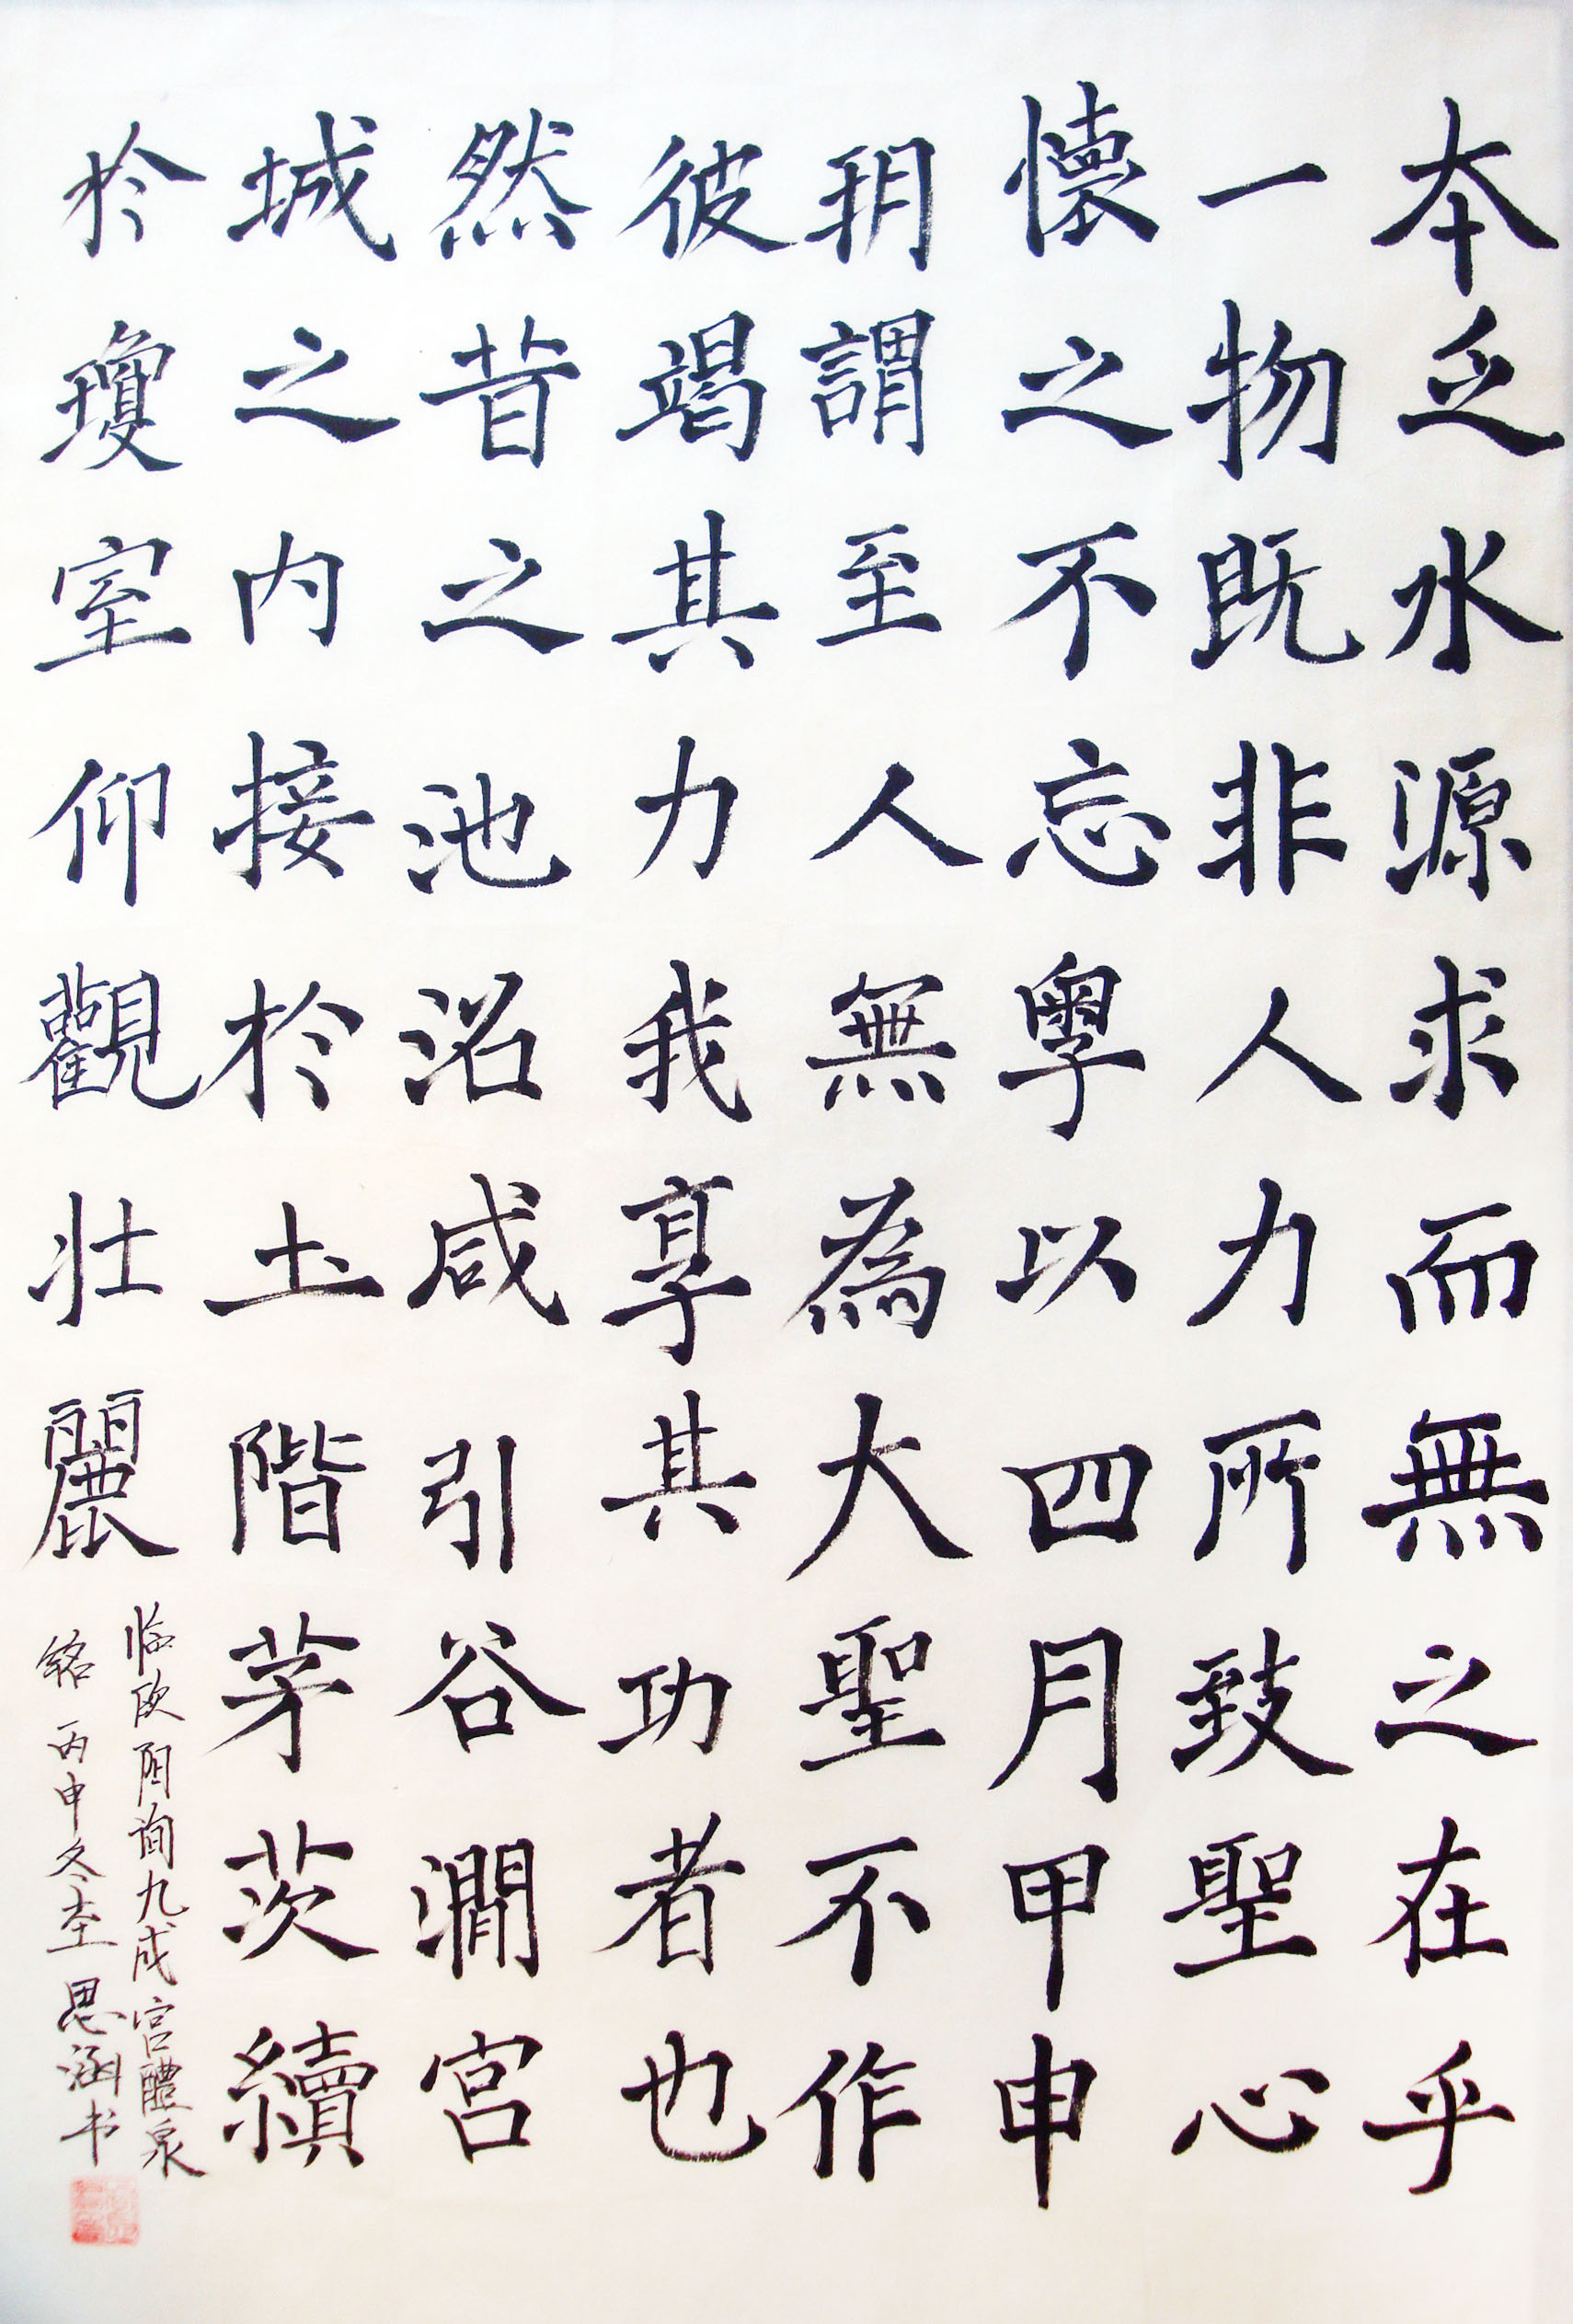 本乏水源求而無之在乎
一物既非人力所致聖心
懷之不忘粵以四月甲申
玥謂至人無為大聖不作
彼竭其力我享其功者也
然昔之池沼咸引谷澗宮
城之内接於土階茅茨續
於瓊室仰觀壯麗
临欧阳询九成宫醴泉
铭 丙申冬 思涵书